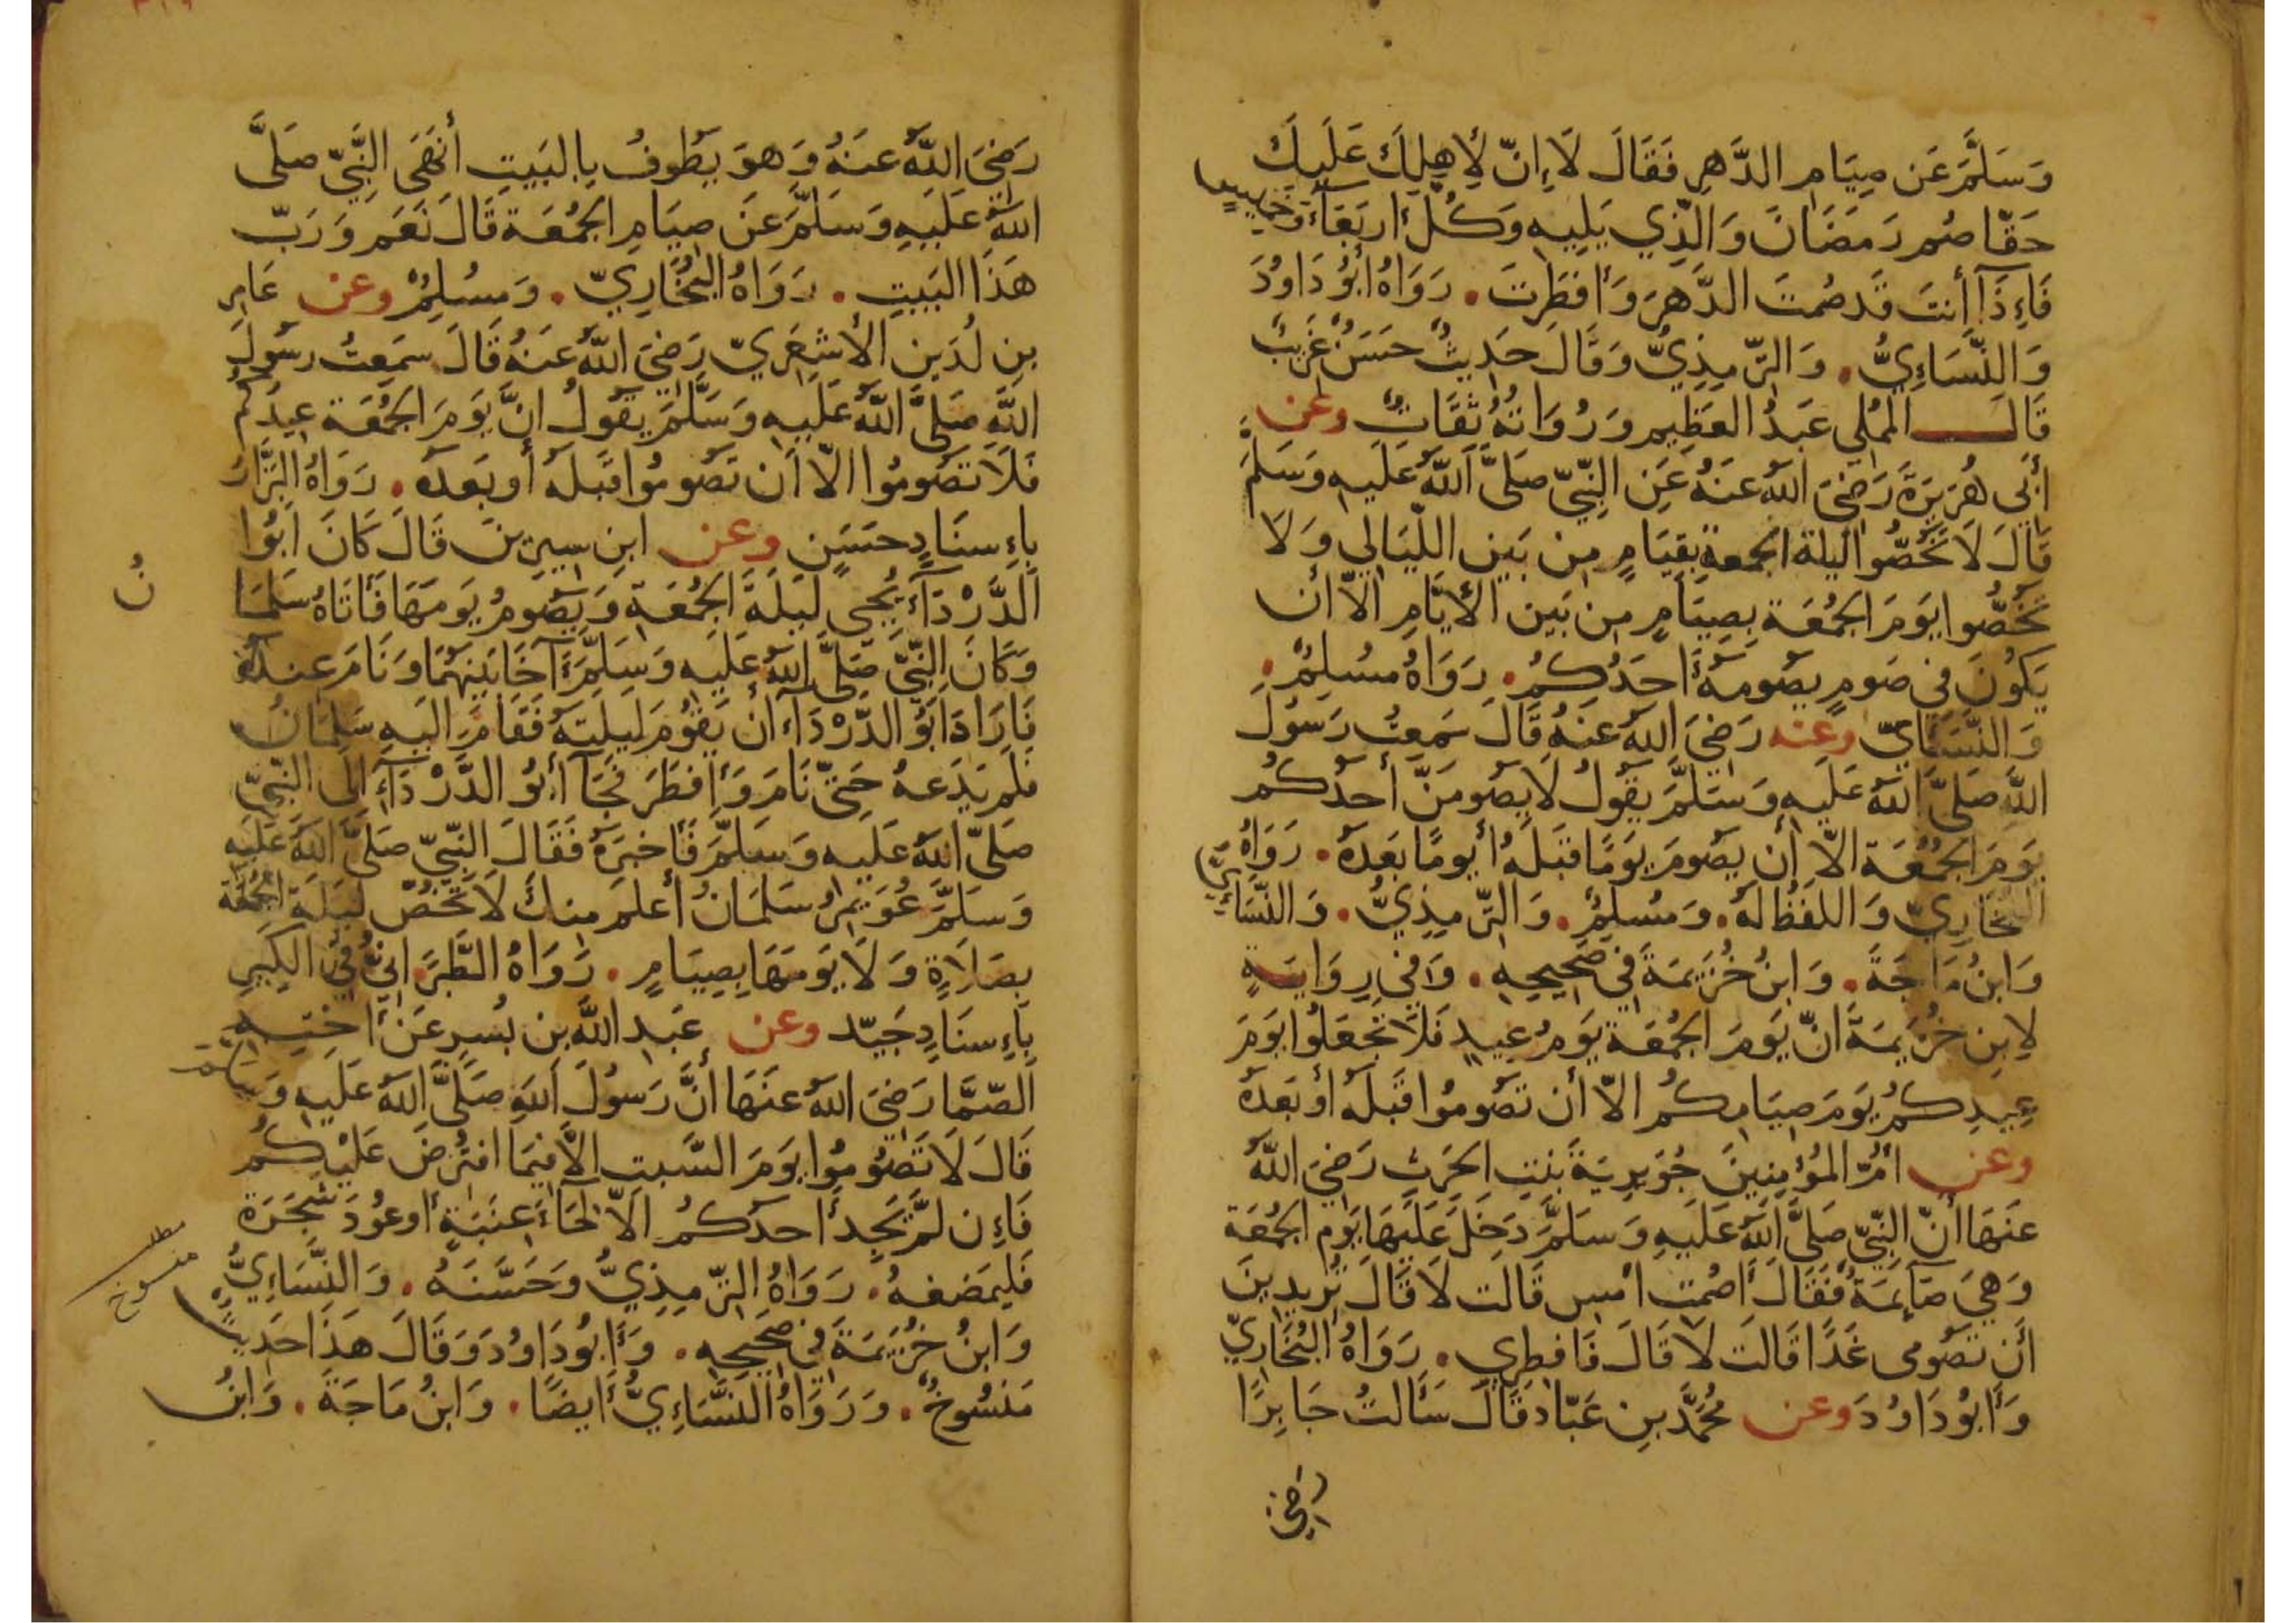 وَسَلَّمَ عَن صِيَامِ الدَّهرِ فَقَالَ لَا إِنّ لِأَهلِكَ عَلَيكَ
حَقّا صُم رَمَضَانَ وَالَّذِي يَلِيهِ وَكُلّ أربَعَآءَ وَخميسٍ
فَاءِذَآ أنتَ قَد صُمتَ الدَّهرَ وَأفطَرتَ . رَوَاهُ أبُو دَاودَ
وَالنَّسَاءِيُّ . وَالتِّرمِذِيُّ وَقَالَ حَدِيثٌ حَسَنٌ غَرِيبٌ
قَالَ المُملِي عَبدُ العَظِيمِ وَرُوَاتُهُ ثِقَاتٌ وعن
أبي هُرَيرَةَ رَضِيَ اللهُ عَنهُ عَنِ النّبِيّ صَلَّى اللهُ عَلَيهِ وَسَلمَ
قَالَ لَا تَخُصُّوا ليلة الجمعةِ بِقِيَامٍ مِن بَينِ اللّيَالِي وَلَا
تَخُصُّوا يَومَ الجُمُعَةِ بِصِيَامٍ مِن بَينِ الأيَّامِ الّا أن
يَكُونَ فِي صَومٍ يَصُومُهُ أحَدُكُم . رَوَاهُ مُسلِمٌ .
وَالنَّسَاءيّ وعنه رَضِيَ اللهُ عَنهُ قَالَ سَمِعتُ رَسُولَ
اللَّهِ صَلَّى اللهُ عَلَيهِ وَسَلَّمَ يَقُولُ لَا يصُومَنَّ أحدُكُم
يَومَ الجُمُعَةِ الّا أن يصُومَ يَومًا قَبلَهُ أو يومًا بَعدَهُ . رَوَاهُ
البُخَارِيّ وَاللفظ لَهُ . وَمُسلِمٌ . وَالتِّرمِذِيُّ . وَالنَّسَاءِيُّ
وَابنُ مَاجَةَ . وَابنُ خُزَيمَةَ فِي صَحِيحِهِ . وَفِي رِوَايَةٍ
لِابنِ خُزَيمَةَ انّ يَومَ الجُمُعَةِ يَومُ عِيدٍ فَلَا تَجعَلُوا يَومَ
عِيدِكُم يَومَ صِيَامِكُم الّا أن تَصُومُوا قَبلَهُ أو بَعدَهُ
وعن امّ المُؤمِنِينَ جُوَيرِيَةَ بِنتِ الحَرثِ رَضِيَ اللهُ
عَنهَا أنّ النّبِيّ صَلَّى اللهُ عَلَيهِ وَسَلَّمَ دَخَلَ عَلَيهَا يَوم الجُمُعَةِ
وَهِيَ صَآئِمَةٌ فَقَالَ أصُمتِ امسِ قَالَت لَا قَالَ تُرِيدِينَ
أن تصُومِي غَدًا قَالَت لَا قَالَ فَافطِرِي . رَوَاهُ البُخَارِيّ
وَأبُو دَاوُدَ وعن مُحَمَّدِ بنِ عَبّادٍ قَالَ سَألتُ جَابِرًا
رَضِيَ
رَضِيَ اللَّهُ عَنهُ وَهوَ يَطُوفُ بِالبَيتِ أنَهَى النَّبِيّ صَلَّى
اللهُ عَلَيهِ وَسَلَّمَ عَن صِيَامِ الجُمُعَةِ قَالَ نَعَم وَرَبّ
هَذَا البَيتِ . رَوَاهُ البُخَارِيّ . وَمسُلِمٌ وعن عَامِر
بنِ لُدَينٍ الأشعَرِيّ رَضِيَ اللَّهُ عَنهُ قَالَ سَمِعتُ رسُولَ
اللَّهِ صَلَّى اللَّهُ عَلَيهِ وَسَلَّمَ يَقُولُ انَّ يَومَ الجُمُعَةِ عِيدُكُم
فَلَا تَصُومُوا الّا أن تَصُومُوا قَبلَهُ أو بَعدَهُ . رَوَاهُ البَزَّارُ
بِاءِسنَادٍ حَسَنٍ وعن ابنِ سِيرِينَ قَالَ كَانَ أبُوا
الدَّرْدَآءِ يُحيِي لَيلَةَ الجُمُعَةِ وَيَصُومُ يَومَهَا فَأتَاهُ سَلمَا
نُ
وَكَانَ النَّبِيّ صَلَّى اللهُ عَلَيهِ وَسَلَّمَ آخَا بَينَهُمَا وَنَامَ عِندَهُ
فَارَادَ أبُو الدّرْدَآءِ أن يَقُومَ لَيلَتَهُ فَقَامَ الَيهِ سَلمَانُ
فَلَم يَدَعهُ حَتّى نَامَ وَأفطَرَ فَجَآ أبُو الدَّرْدَآءِ الَى النّبِيّ
صَلّى اللهُ عَلَيهِ وَسَلَّمَ فَأخبَرَهُ فَقَالَ النّبِيّ صَلَّى اللهُ عَلَيهِ
وَسَلَّمَ عُوَيمِرُ سَلمَانُ أعلَم مِنكَ لَا تَخُصّ لَيلَةَ الجُمُعَةِ
بِصَلَاةٍ وَلَا يَومَهَا بِصِيَامٍ . رَوَاهُ الطَّبَرَانِيُّ فِي الكَبِيرِ
بِاءِسنَادٍ جَيّد وعن عَبدِ اللَّهِ بنِ بُسرٍ عَن أختِهِ
الصّمَّا رَضِيَ اللهُ عَنهَا أنَّ رَسُولَ اللهِ صَلَّى اللهُ عَلَيهِ وَسَلَّمَ
قَالَ لَا تَصُومُوا يَومَ السَّبتِ الّا فِيمَا افتُرِضَ عَلَيْكُم
فَاءِن لَّم يَجِد أحدُكُم الّا لِحَآءَ عِنَبَةٍ أو عُودَ شَجَرَةٍ
فَليَمضَغهُ . رَوَاهُ التّرمِذِيُّ وَحَسَّنَهُ . وَالنَّسَاءِيُّ
مطلب
منسوخ
وَابنُ خُزَيمَةَ فِي صَحِيحِهِ . وَأبُو دَاوُدَ وَقَالَ هَذَا حَدِيثٌ
مَنسُوخٌ . وَرَوَاهُ النَّسَاءِيُّ أيضًا . وَابنُ مَاجَةَ . وَابنُ